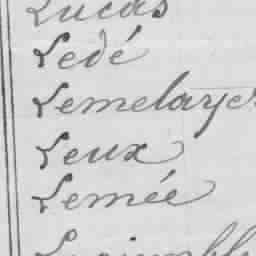 Lucas
Ledé
Lemelayer
Leux
Lemée